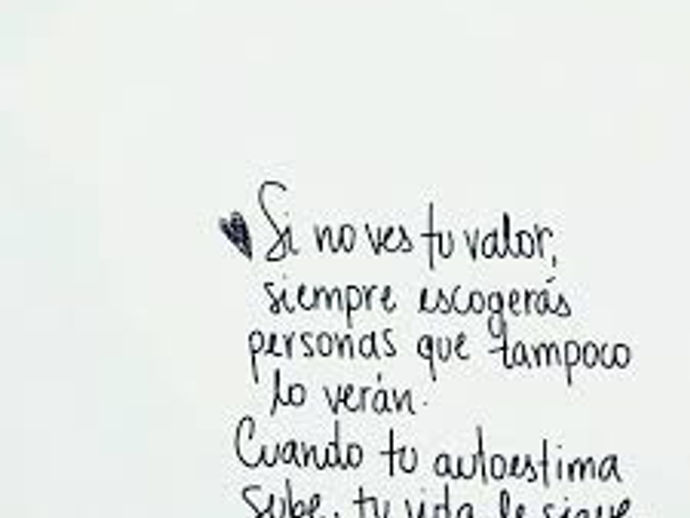 Si no ves tu valor,
siempre escogerás
personas que tampoco
lo verán.
Cuando tu autoestima
sube, tu vida le sigue